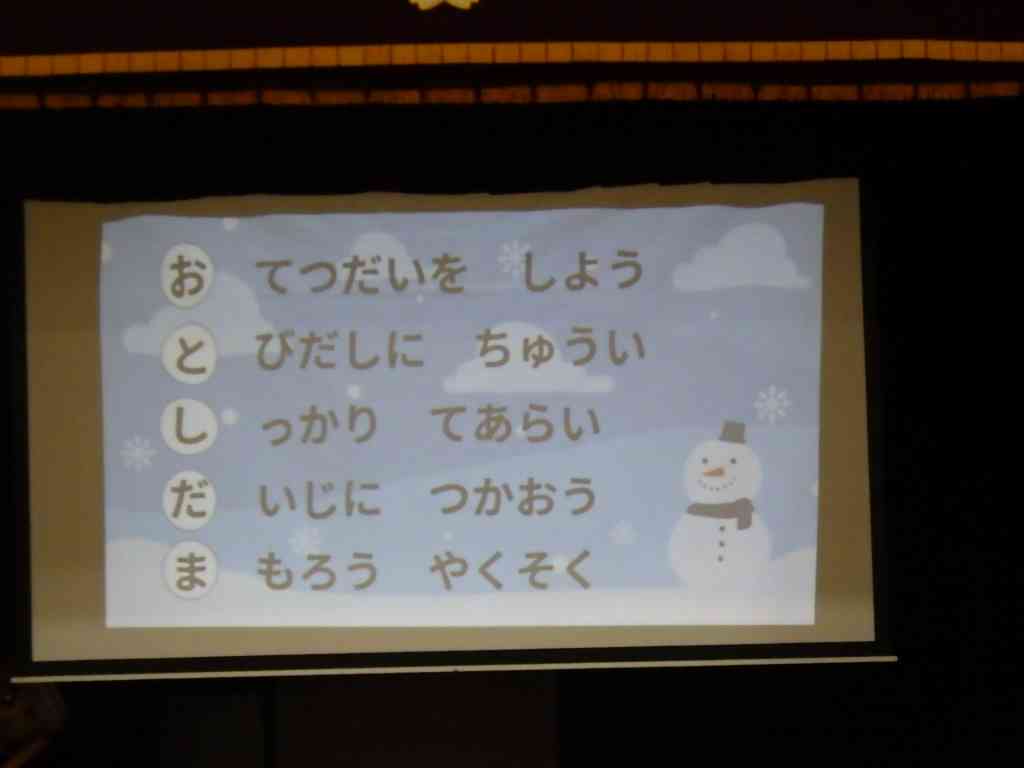 お てつだいを しよう
と びだしに ちゅうい
し っかり てあらい
だ いじに つかおう
ま もろう やくそく